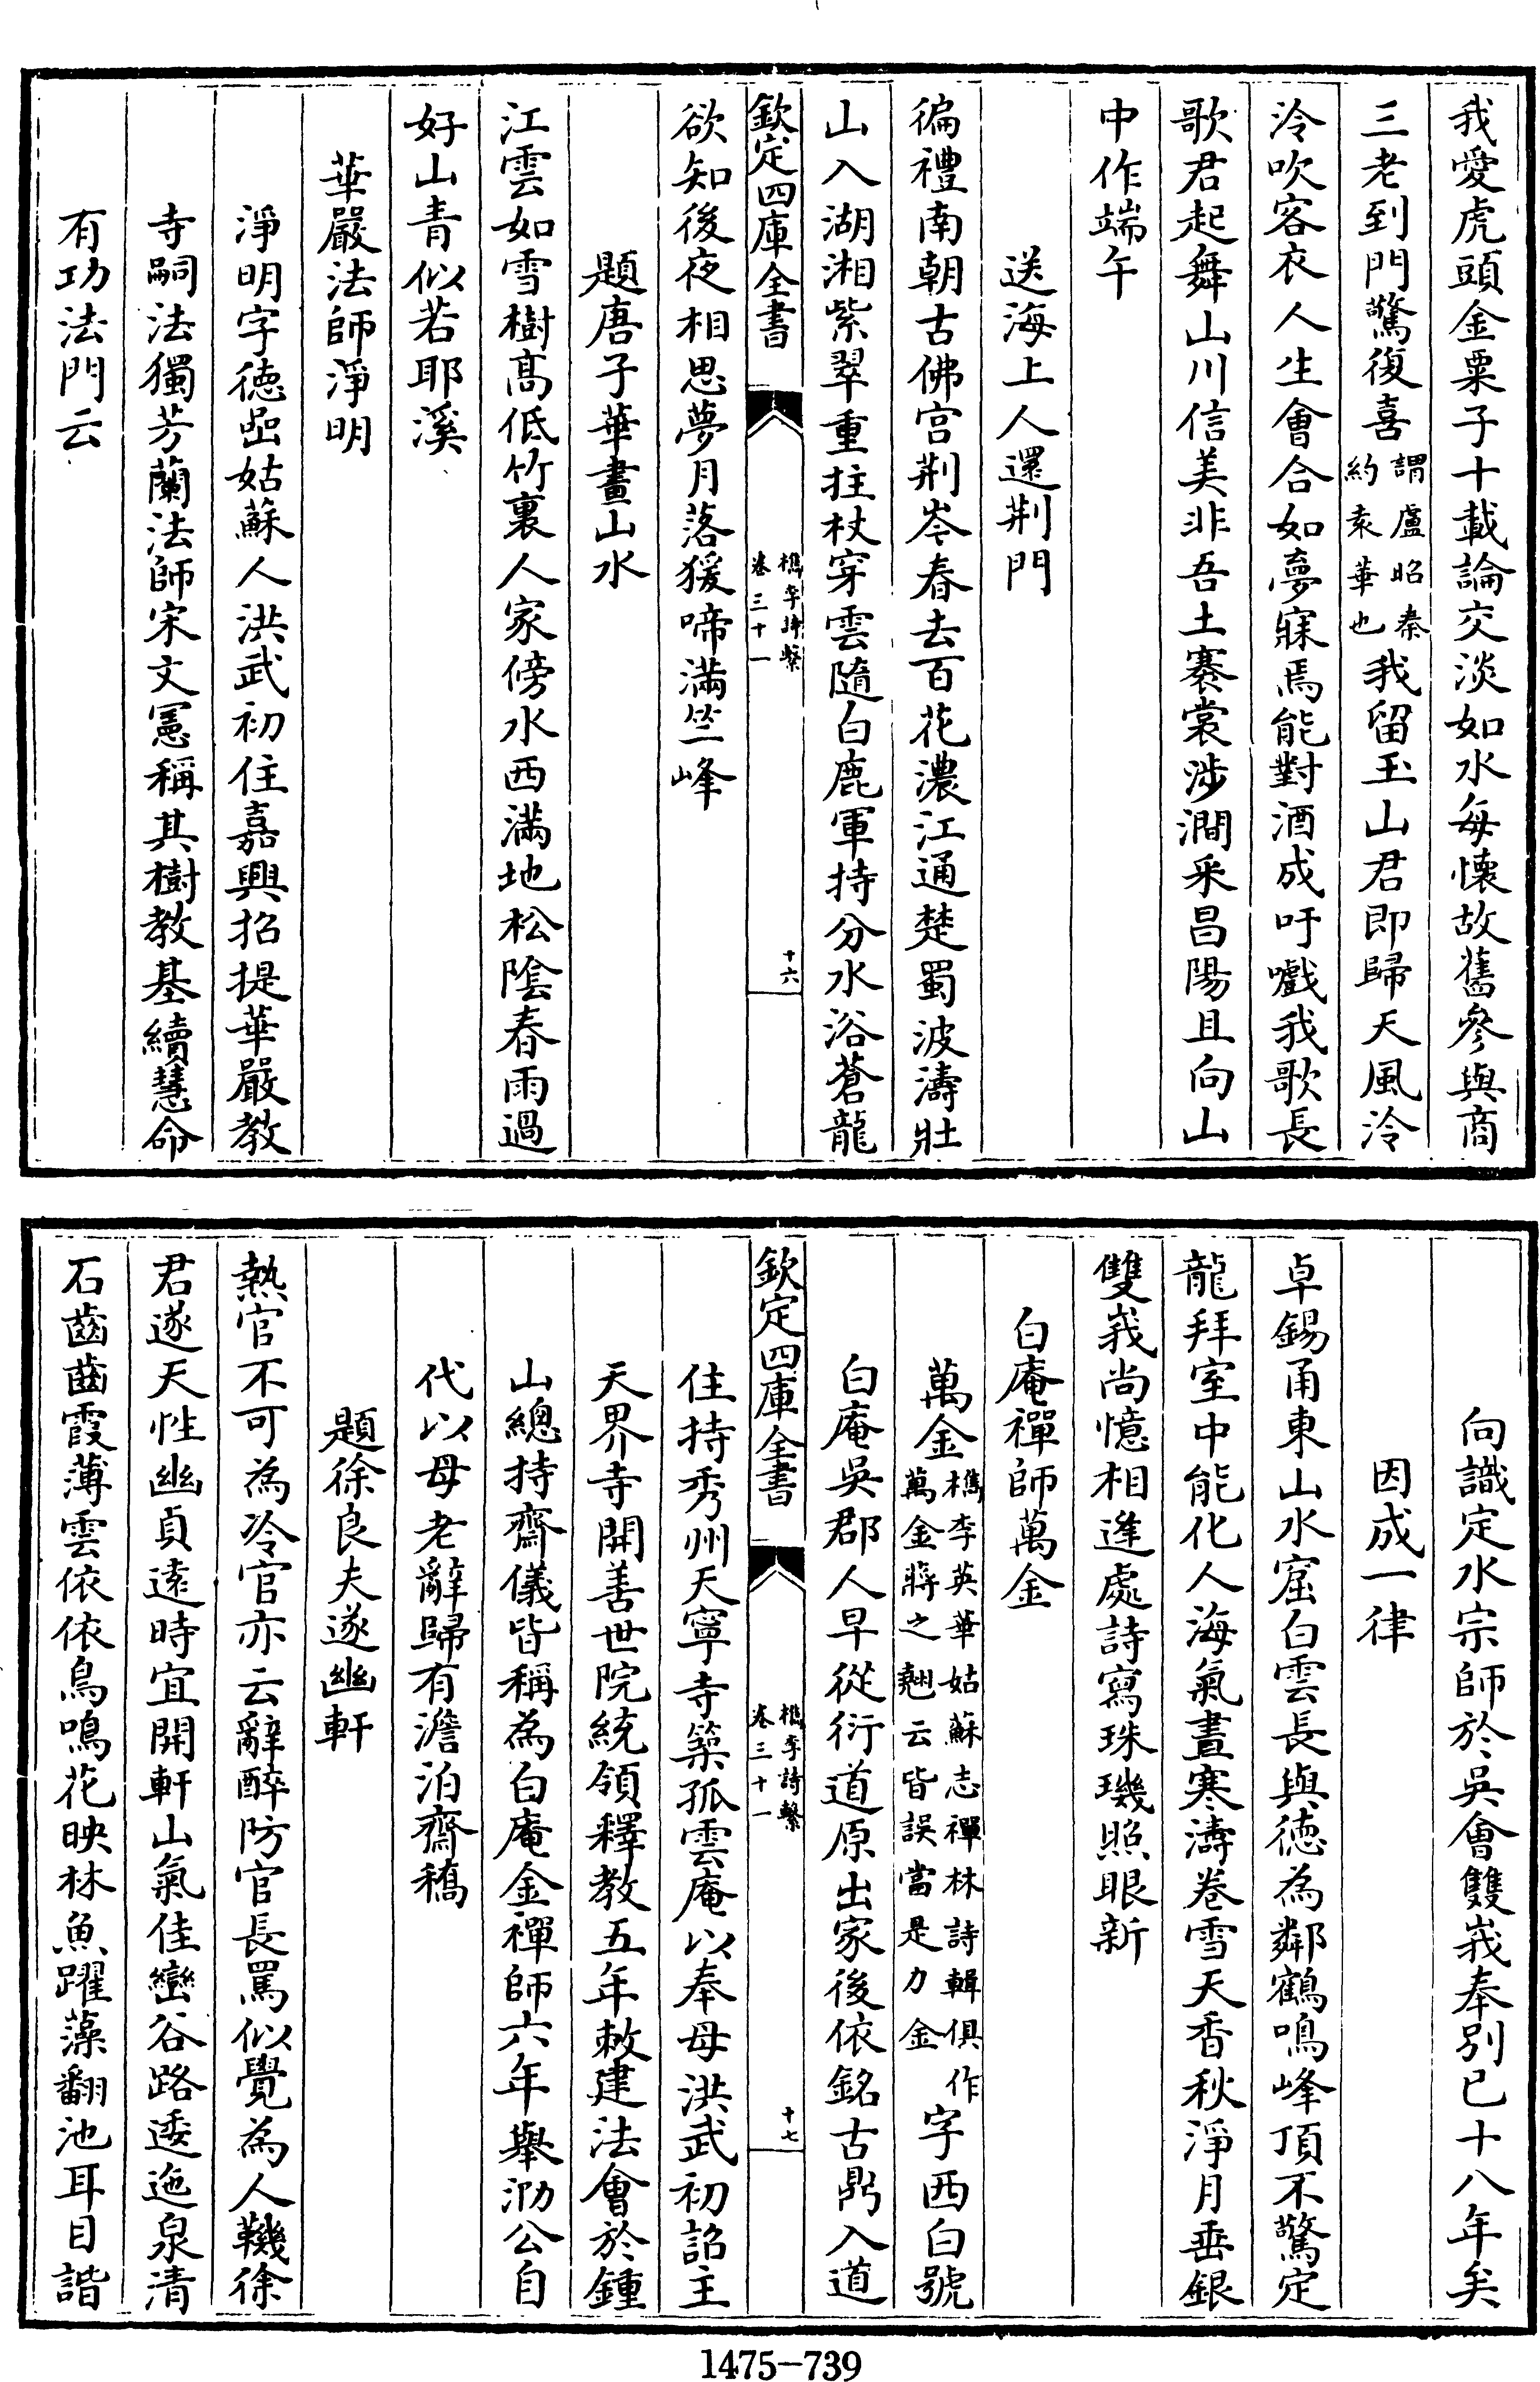 我愛虎頭金粟子十載論交淡如水每懷故舊參與商
三老到門驚復喜謂盧昭秦約袁華也我留玉山君即歸天風泠
泠吹客衣人生會合如夢寐焉能對酒成吁嚱我歌長
歌君起舞山川信美非吾土褰裳涉澗采昌陽且向山
中作端午
送海上人還荆門
徧禮南朝古佛宫荆岑春去百花濃江通楚蜀波濤壯
山入湖湘紫翠重拄杖穿雲隨白鹿軍持分水浴蒼龍
欽定四庫全書
檇李詩繫
卷三十一
十六
欲知後夜相思夢月落猨啼滿竺峰
題唐子華畫山水
江雲如雪樹髙低竹裏人家傍水西滿地松隂春雨過
好山青似若耶溪
華嚴法師淨明
淨明字徳嵒姑蘇人洪武初住嘉興招提華嚴教
寺嗣法獨芳蘭法師宋文憲稱其樹教基續慧命
有功法門云
向識定水宗師於吳會雙峩奉别已十八年矣
因成一律
卓錫甬東山水窟白雲長與徳為鄰鶴鳴峰頂不驚定
龍拜室中能化人海氣晝寒濤卷雪天香秋淨月垂銀
雙峩尚憶相逢處詩寫珠璣照眼新
白庵禪師萬金
萬金檇李英華姑蘇志禪林詩輯俱作萬金蔣之翹云皆誤當是力金字西白號
白庵吳郡人早從衍道原出家後依銘古鼎入道
欽定四庫全書
檇李詩繫
卷三十一
十七
住持秀州天寧寺築孤雲庵以奉母洪武初詔主
天界寺開善世院統領釋教五年敕建法會於鍾
山總持齋儀皆稱為白庵金禪師六年舉泐公自
代以母老辭歸有澹泊齋稿
題徐良夫遂幽軒
熱官不可為冷官亦云辭醉防官長罵似覺為人鞿徐
君遂天性幽貞逺時宜開軒山氣佳巒谷路逶迤泉清
石齒齒霞薄雲依依鳥鳴花映林魚躍藻翻池耳目諧
1475-739